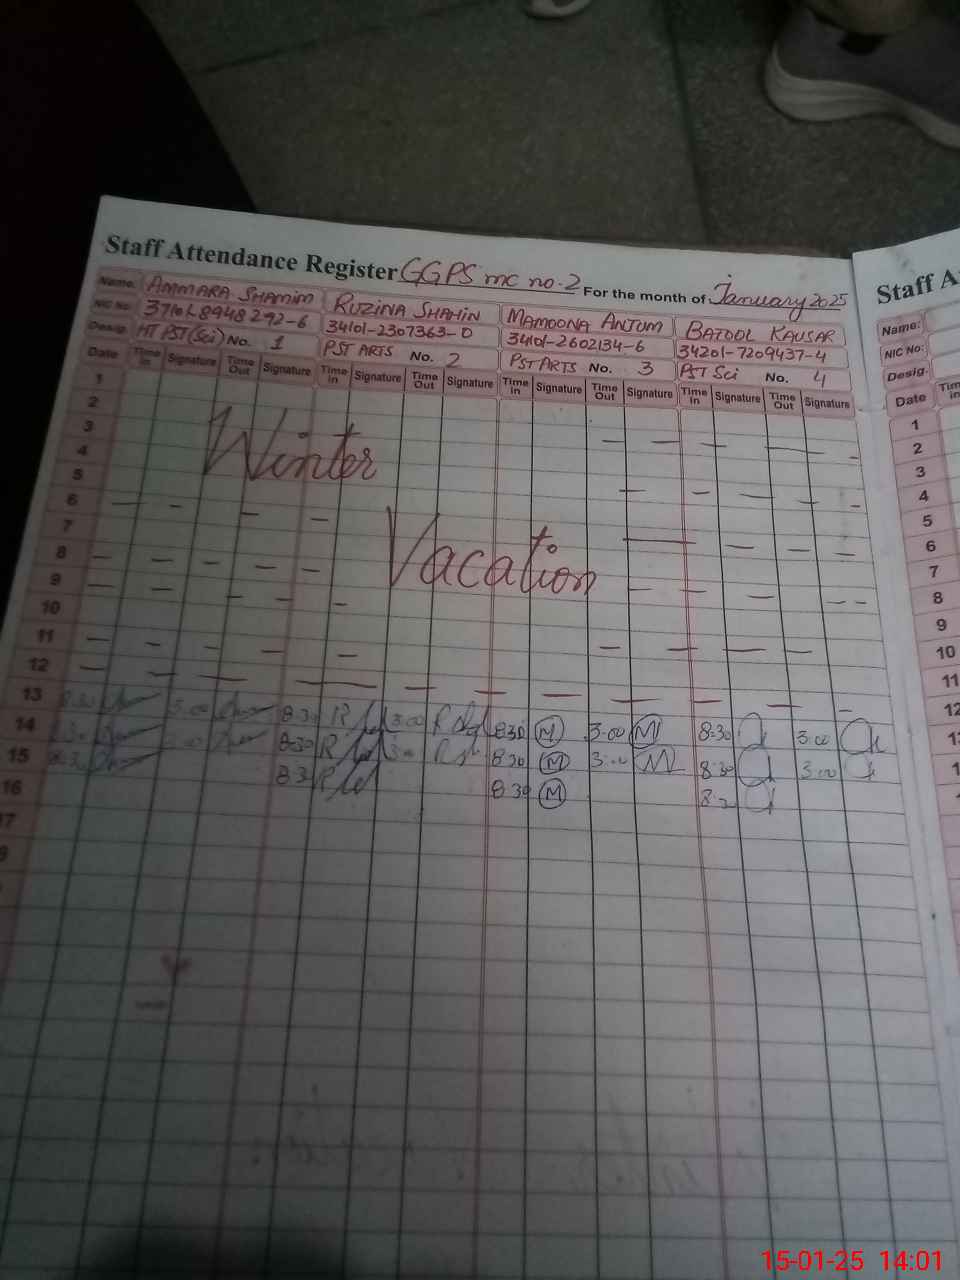 Staff Attendance Register GGPS mc no.2 For the month of January 2025
Name. AMMARA SHAMIM RUZINA SHAHIN MAMOONA ANJUM BATOOL KAUSAR
NIC No. 34101-2307363-0 34101-2602134-6 34201-7209437-4
Desig. HT PST(Sci) No. 1 PST ARTS No. 2 PST ARTS No. 3 PST Sci No. 4
Date Time In Signature Time Out Signature Time In Signature Time Out Signature Time In Signature Time Out Signature Time In Signature Time Out Signature
1
2
3
4
5
6
7
8
9
10
11
12
13
14
15
16
17
Winter
Vacation
8:30 3:00 8:30 3:00 8:30 M 3:00 M 8:30 3:00
8:30 3:00 8:30 3:00 8:30 M 3:00 M 8:30 3:00
8:30 8:30 8:30 M
Staff A
Name:
NIC No:
Desig.
Date
1
2
3
4
5
6
7
8
9
10
11
12
15-01-25 14:01